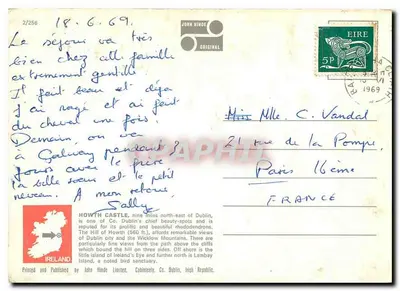 2/256
18.6.69.
JOHN HINDE
ORIGINAL
Le séjour va très
bien chez cette famille
extrêmement gentille.
Il fait beau et déjà
j'ai nagé et ai fait
du cheval une fois.
Demain, on va
à Galway pendant 3
jours avec le frère
la belle soeur et le petit
neveu. A mon retour
Sally
EIRE
5P
1969
Miss Mlle. C. Vandal
21 rue de la Pompe
Paris 16ème
FRANCE
IRELAND
HOWTH CASTLE, nine miles north-east of Dublin,
is one of Co. Dublin's chief beauty-spots and is
reputed for its prolific and beautiful rhododendrons.
The Hill of Howth (560 ft.), affords remarkable views
of Dublin city and the Wicklow Mountains. There are
particularly fine views from the path above the cliffs
which bound the hill on three sides. Off shore is the
little island of Ireland's Eye and further north is Lambay
Island, a noted bird sanctuary.
Printed and Published by John Hinde Limited, Cabinteely, Co. Dublin, Irish Republic.